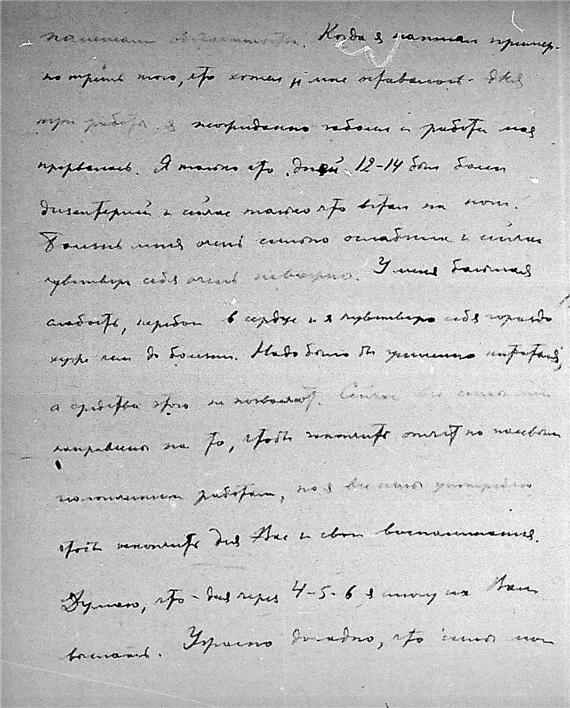 Когда я написал пример-
но треть того, что хотел и мне оставалось дня
три работы я неожиданно заболел и работа моя
прервалась. Я только что дней 12-14 был болен
дизентерией и сейчас только что встал на ноги.
Болезнь меня очень сильно ослабила и сейчас
чувствую себя очень неважно. У меня большая
слабость, перебои в сердце и я чувствую себя гораздо
хуже чем до болезни. Надо было бы усиленно питаться,
а средства этого не позволяют. Сейчас все силы мои
направлены на то, чтобы закончить отчет по полевым
работам, но я все силы употреблю
чтобы закончить для Вас и свои воспоминания.
Думаю, что дня через 4-5-6 я смогу их Вам
выслать. Ужасно досадно, что силы мои